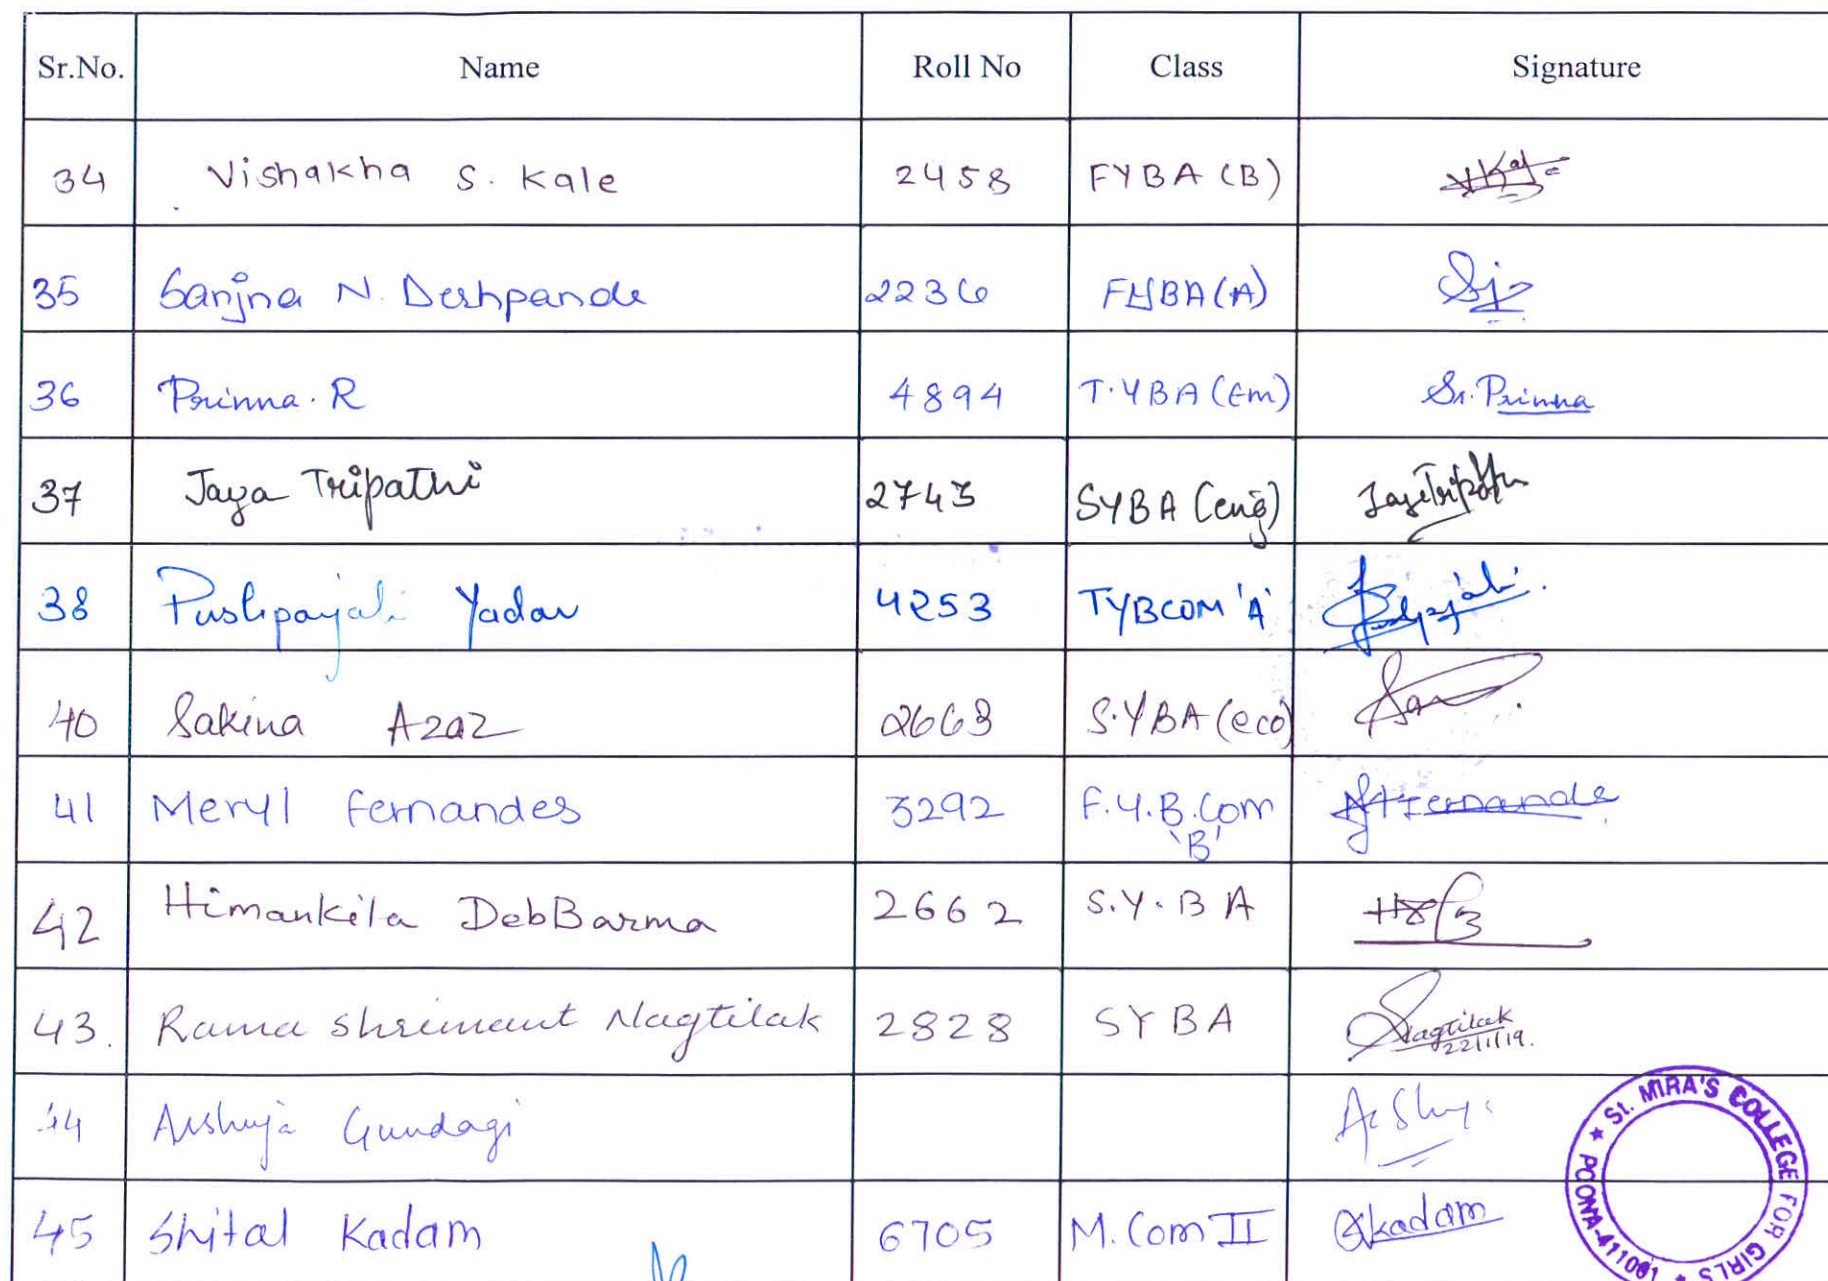 Sr.No. Name Roll No Class Signature
34 Vishakha S. Kale 2458 FYBA (B)
35 Sanjna N. Deshpande 2236 FYBA (A)
36 Prinna. R 4894 T.YBA (Em) Sr. Prinna
37 Jaya Tripathi 2743 SYBA (eng) JayaTripathi
38 Pushpanjali Yadav 4253 TYBCOM 'A'
40 Sakina Azaz 2663 S.YBA (eco)
41 Meryl Fernandes 3292 F.Y.B.Com
'B'
42 Himankila DebBarma 2662 S.Y.BA
43. Rama Shrimant Nagtilak 2828 SYBA Nagtilak
22/1/19.
44 Gundagi
45 Shital Kadam 6705 M.Com II Kadam
St. MIRA'S COLLEGE FOR GIRLS ★ POONA-411001 ★